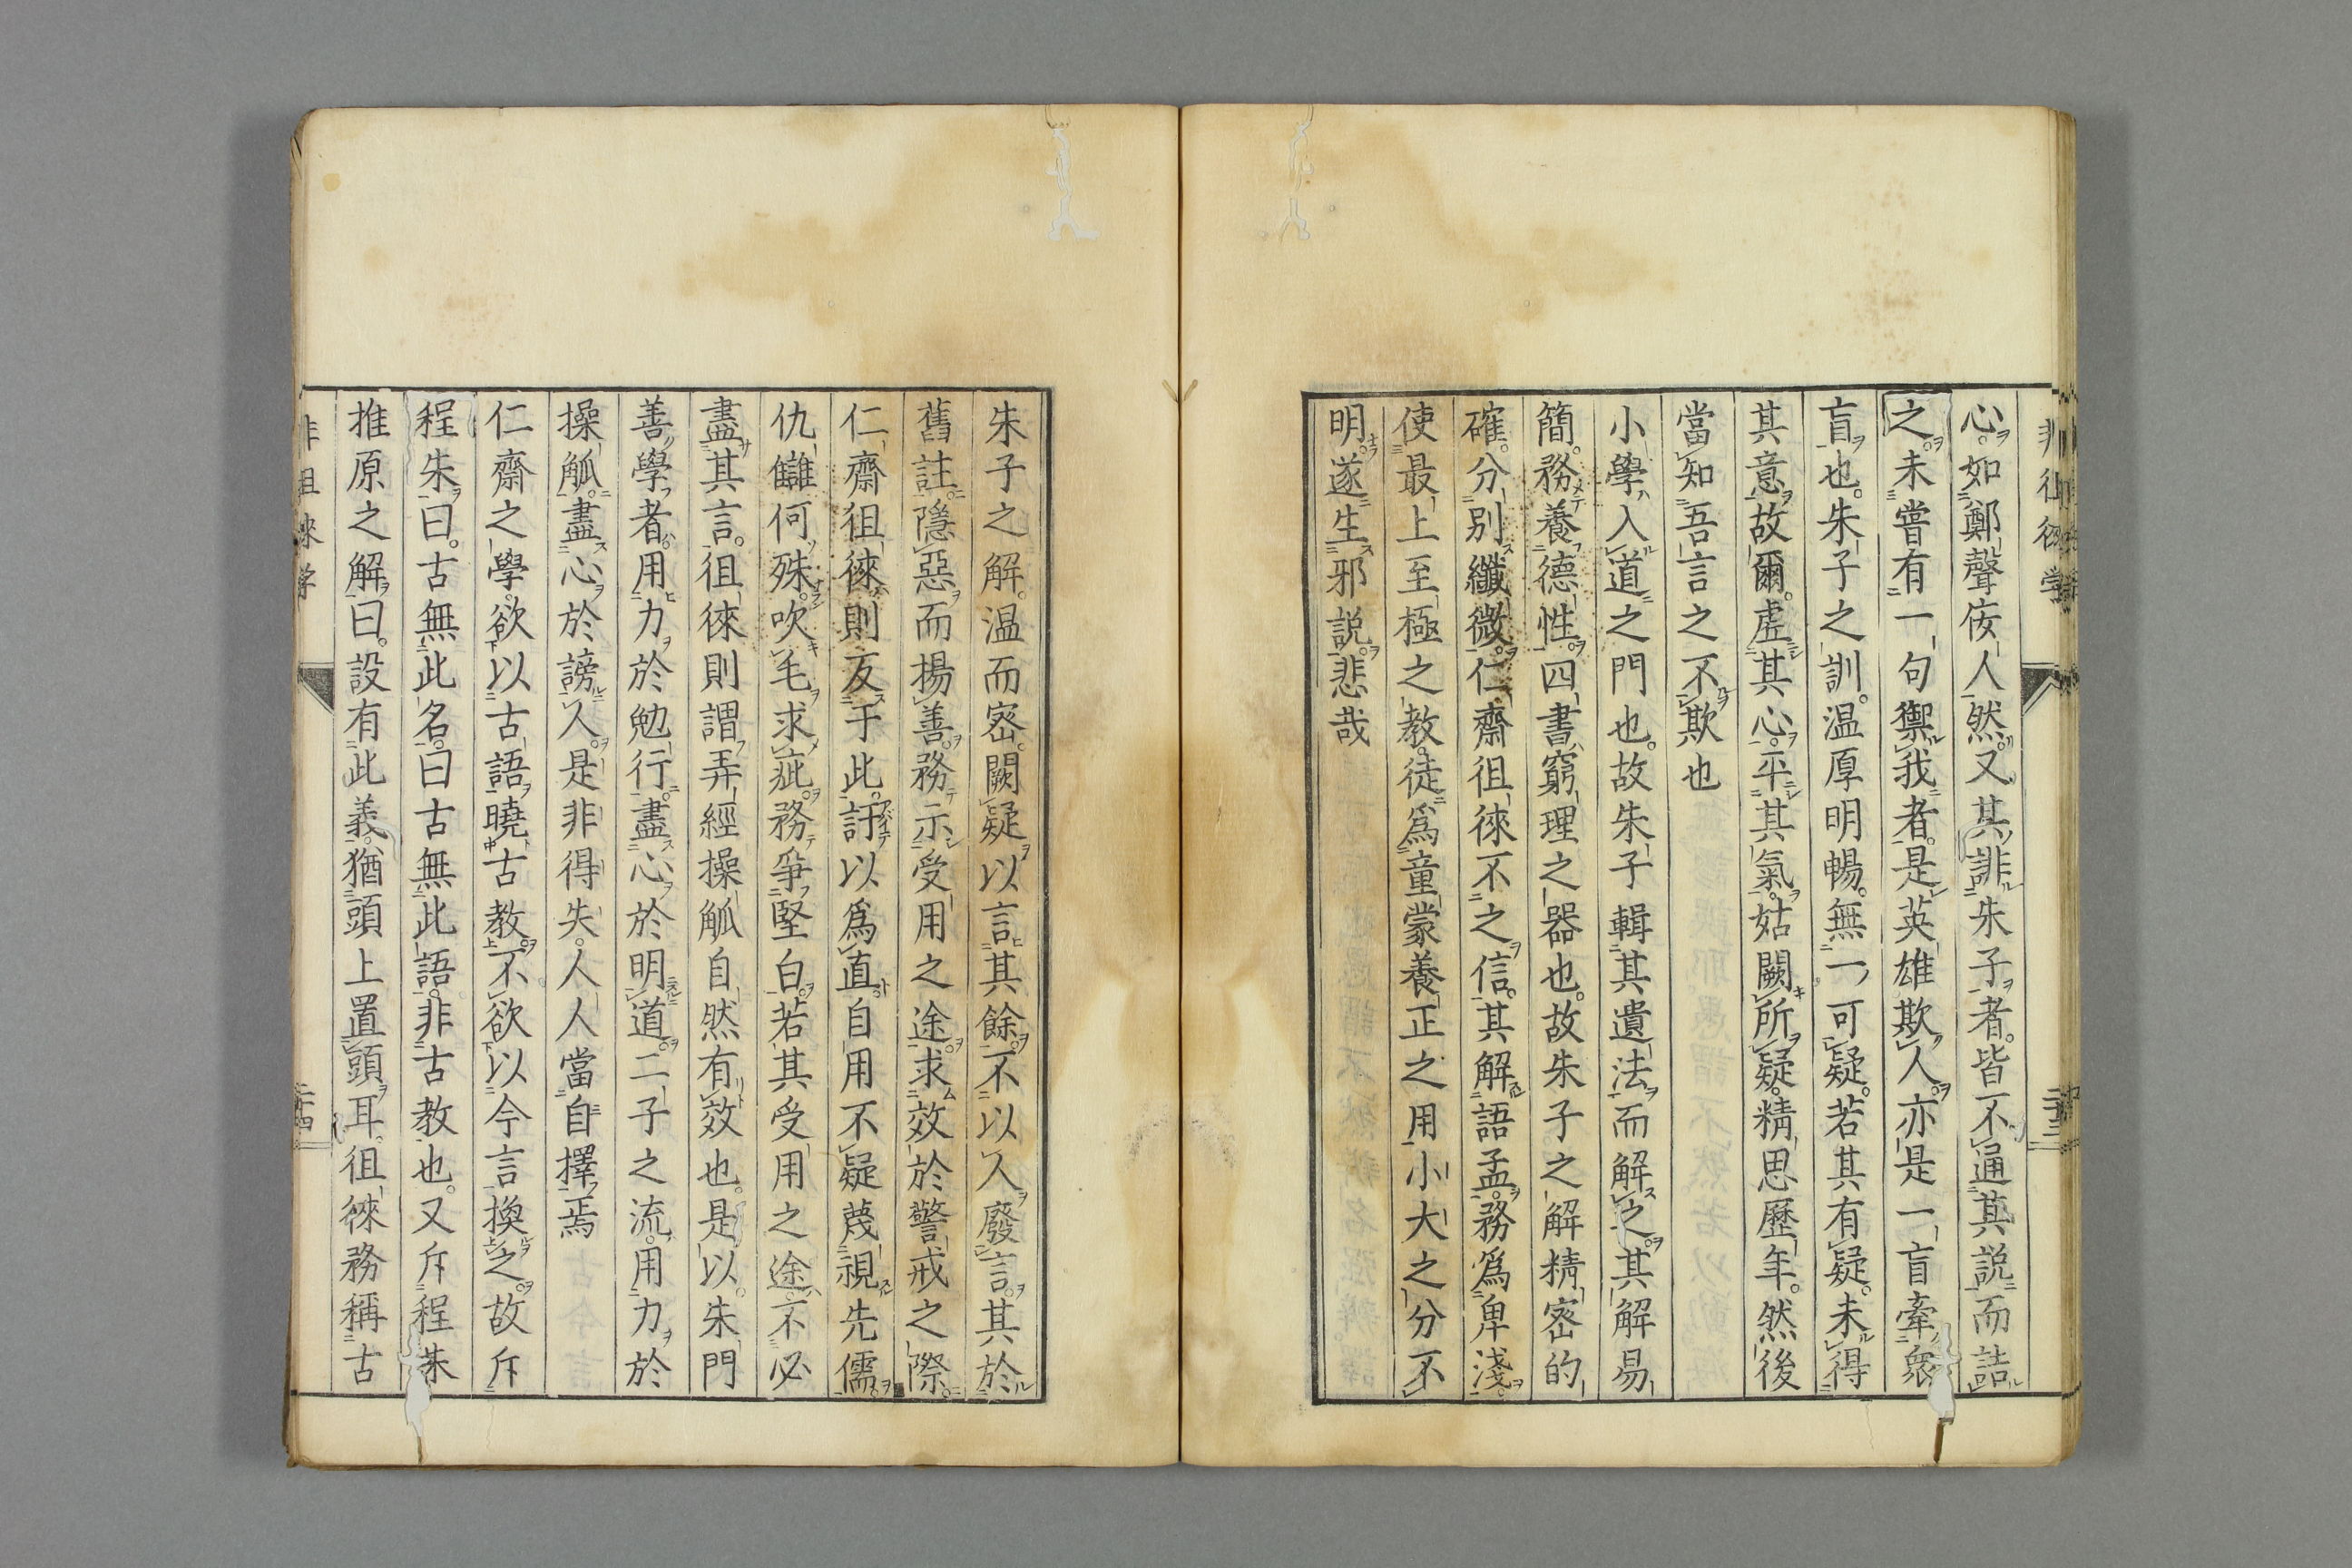 心。如鄭聲佞人然又其誹朱子者。皆不通其説而詰
之未嘗有一句禦我者。是英雄欺人亦是一盲牽衆
盲也。朱子之訓。温厚明暢。無一可疑。若其有疑。未得
其意故爾。虚其心。平其氣。姑闕所疑。精思歴年。然後
當知吾言之不欺也
小學入道之門也。故朱子輯其遺法而解之其解易
簡。務養德性。四書窮理之器也。故朱子之解精密的
確。分別纖微。仁齋徂徠不之信。其解語孟。務爲卑淺。
使最上至極之教。徒爲童蒙養正之用小大之分不
明。遂生邪説。悲哉
朱子之解。温而密。闕疑以言其餘。不以人廢言。其於
舊註。隱惡而揚善。務示受用之途。求效於警戒之際。
仁齋徂徠則反于此。訐以爲直自用不疑蔑視先儒。
仇讎何殊。吹毛求疵。務爭堅白。若其受用之途。不必
盡其言。徂徠則謂弄經操觚自然有效也。是以。朱門
善學者。用力於勉行。盡心於明道。二子之流。用力於
操觚。盡心於謗人。是非得失。人人當自擇焉
仁齋之學。欲以古語曉古教。不欲以今言換之。故斥
程朱曰。古無此名。曰古無此語。非古教也。又斥程朱
推原之解曰。設有此義。猶頭上置頭耳。徂徠務稱古
非徂徠学
二十四